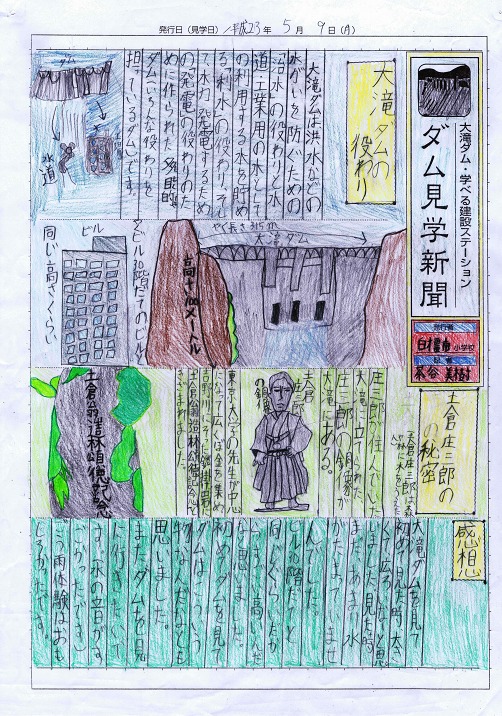 発行日(見学日)/平成23年 5月 9日(月)
大滝ダム・学べる建設ステーション
ダム見学新聞
発行者
小学校
記者
大滝ダムの
役わり
大滝ダムは洪水などの
水がいを防ぐための
治水の役わりと水
道・工業用の水として
の利用する水を貯め
る利水の役わり、そし
て水力発電するため
の発電の役わりのた
めに作られた多目的
ダム。いろんな役わりを
担っているダムです。
ダム
水道
やく長さ315m
大滝ダム
高さ100メートル
ビル
ビル30階だてのビルと
同じ高さくらい
土倉庄三郎の
の秘密
庄三郎が住んでいた
大滝に立てられた
庄三郎の銅像が
大滝にある。
土倉
庄三郎
の銅像
東京大学の先生が中心
となって広くお金を集め
きざまれました。
土倉翁造林頌徳記念
感想
大滝ダムを見て
初めて見た時、大き
くて広いなと思い
ました。見た時
がたまってませ
んでした。
ビル30階だてと
同じくらいだか
らすごく高いんだ
なと思いました。
初めてダムを見て
ダムはこういう
物なんだなとも
思いました。
またダムを見
に行きたいで
す。水の音がす
ごかったでき